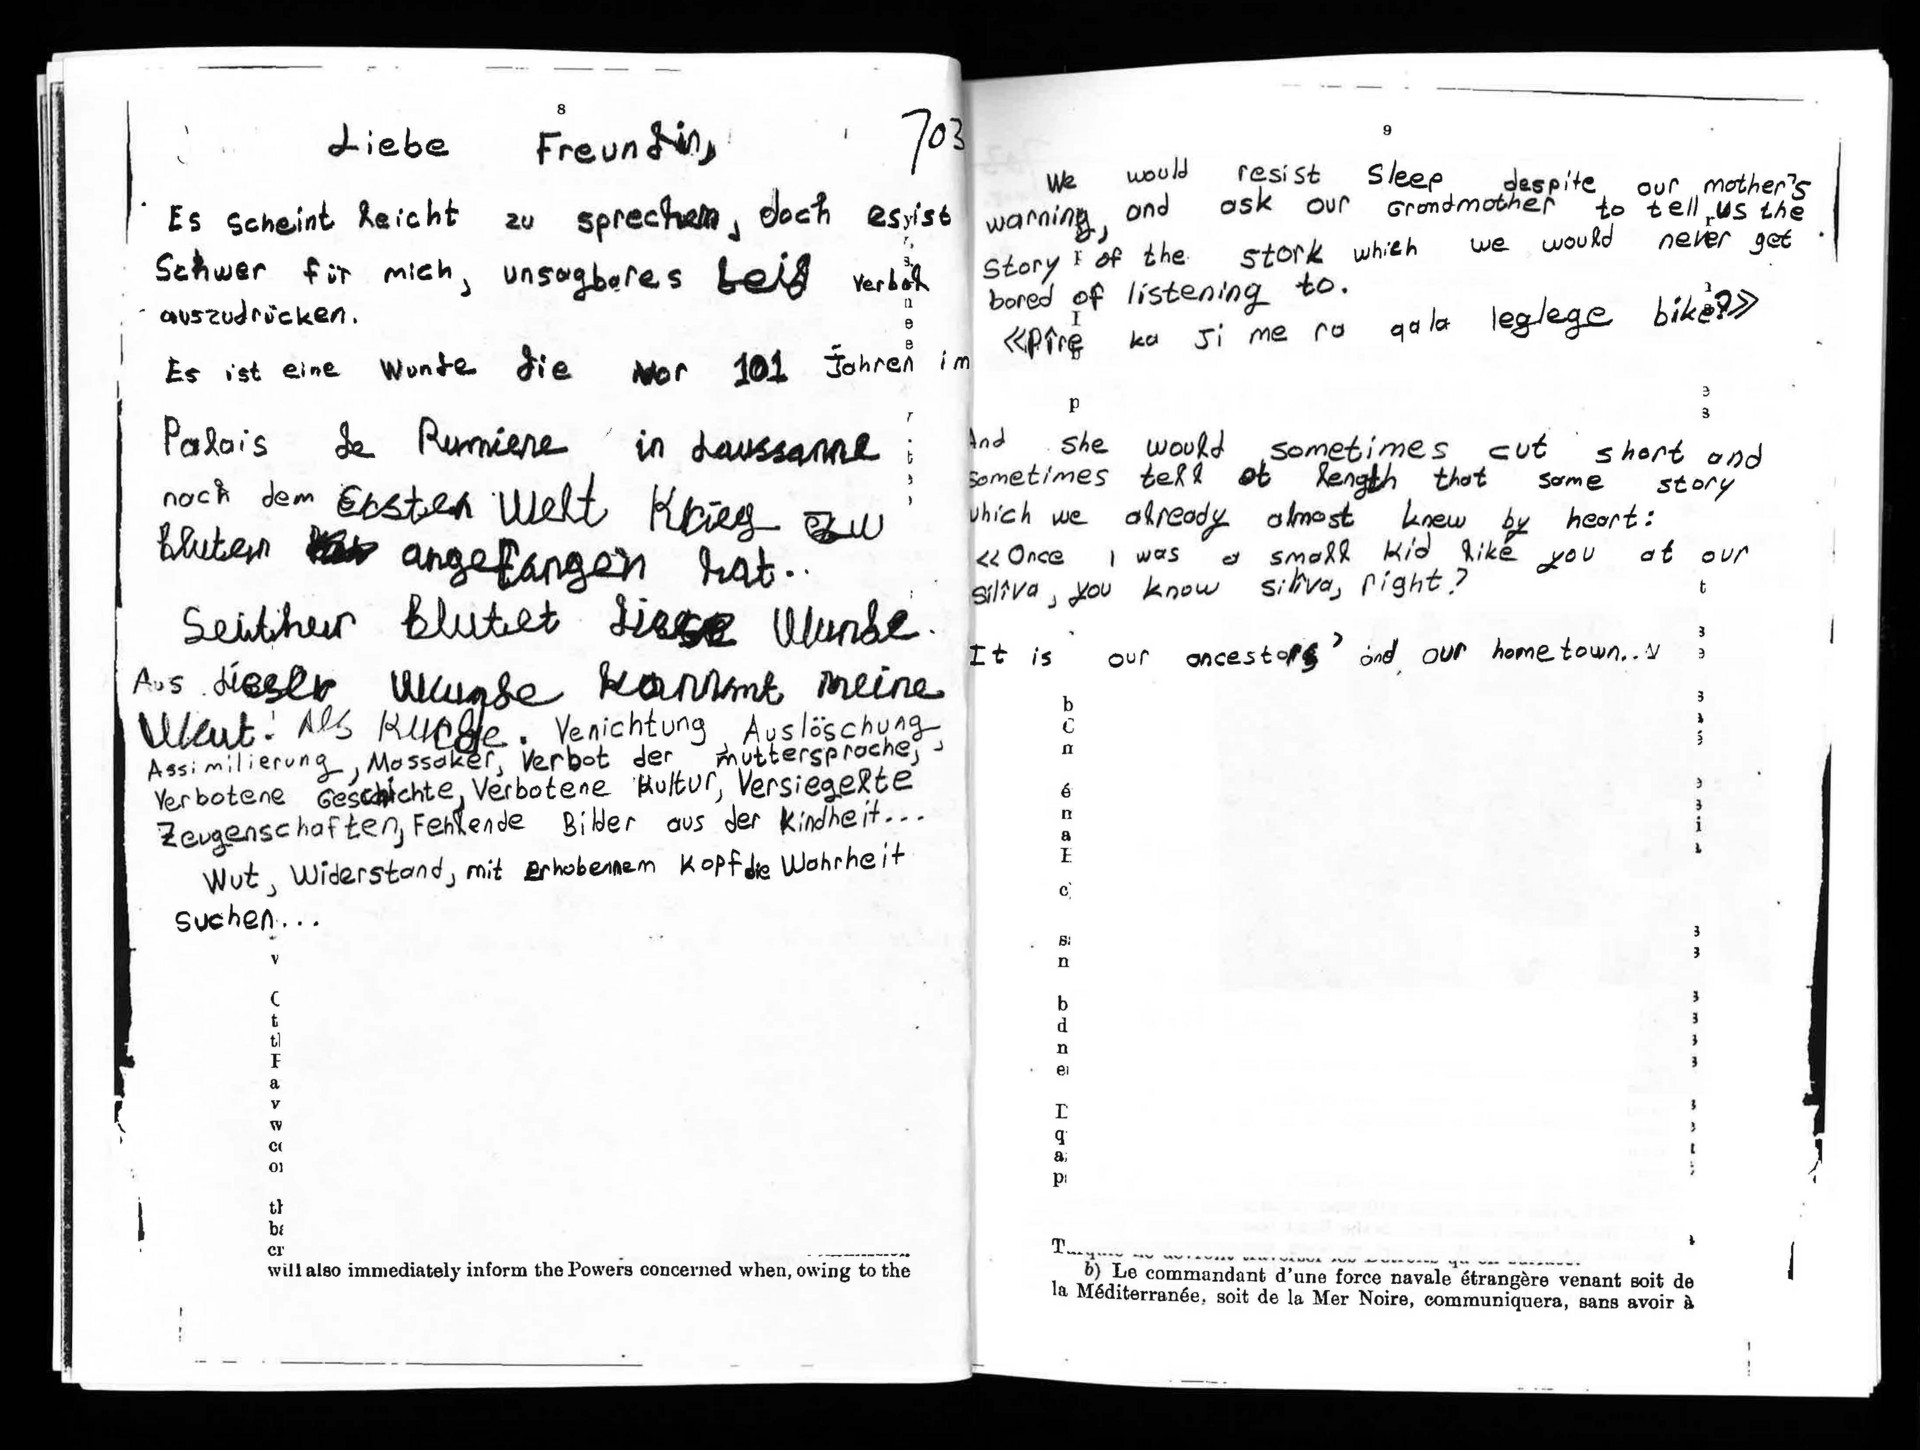 8
703
Liebe Freundin,
Es scheint leicht zu sprechen, doch es ist
Schwer für mich, unsagbares Leid verbal
auszudrücken.
Es ist eine Wunde die vor 101 Jahren im
Palais de Rumiene in Laussanne
nach dem Ersten Welt Krieg zu
bluten angefangen hat..
Seither blutet diese Wunde.
Aus dieser Wunde kommt meine
Wut: Als Kurde. Venichtung Auslöschung
Assimilierung, Massaker, Verbot der muttersprache,
Verbotene Geschichte, Verbotene Kultur, Versiegelte
Zeugenschaften, Fehlende Bilder aus der Kindheit...
Wut, Widerstand, mit erhobennem Kopf die Wahrheit
suchen...
v
C
t
tl
F
a
v
w
co
or
th
ba
cr
will also immediately inform the Powers concerned when, owing to the
9
We would resist Sleep despite our mother's
warning, and ask our Grandmother to tell us the
Story of the stork which we would never get
bored of listening to.
«Pîrê ka Ji me ra qala leglege bike?»
p
And she would sometimes cut short and
sometimes tell at length that same story
which we already almost knew by heart:
«Once I was a small kid like you at our
silîva, you know silîva, right?
It is our ancestors' and our hometown..
b
C
n
é
n
a
E
c)
sa
n
b
d
n
el
D
q
a
p
b) Le commandant d'une force navale étrangère venant soit de
la Méditerranée, soit de la Mer Noire, communiquera, sans avoir à